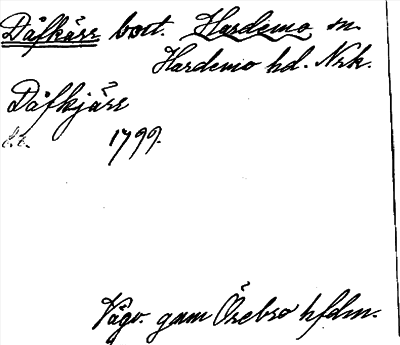 Dåfkärr bort. Hardemo sn.
Hardemo hd. Nrk.
Dåfkjärr
1799.
Vägv. gnm Örebro hfdm.